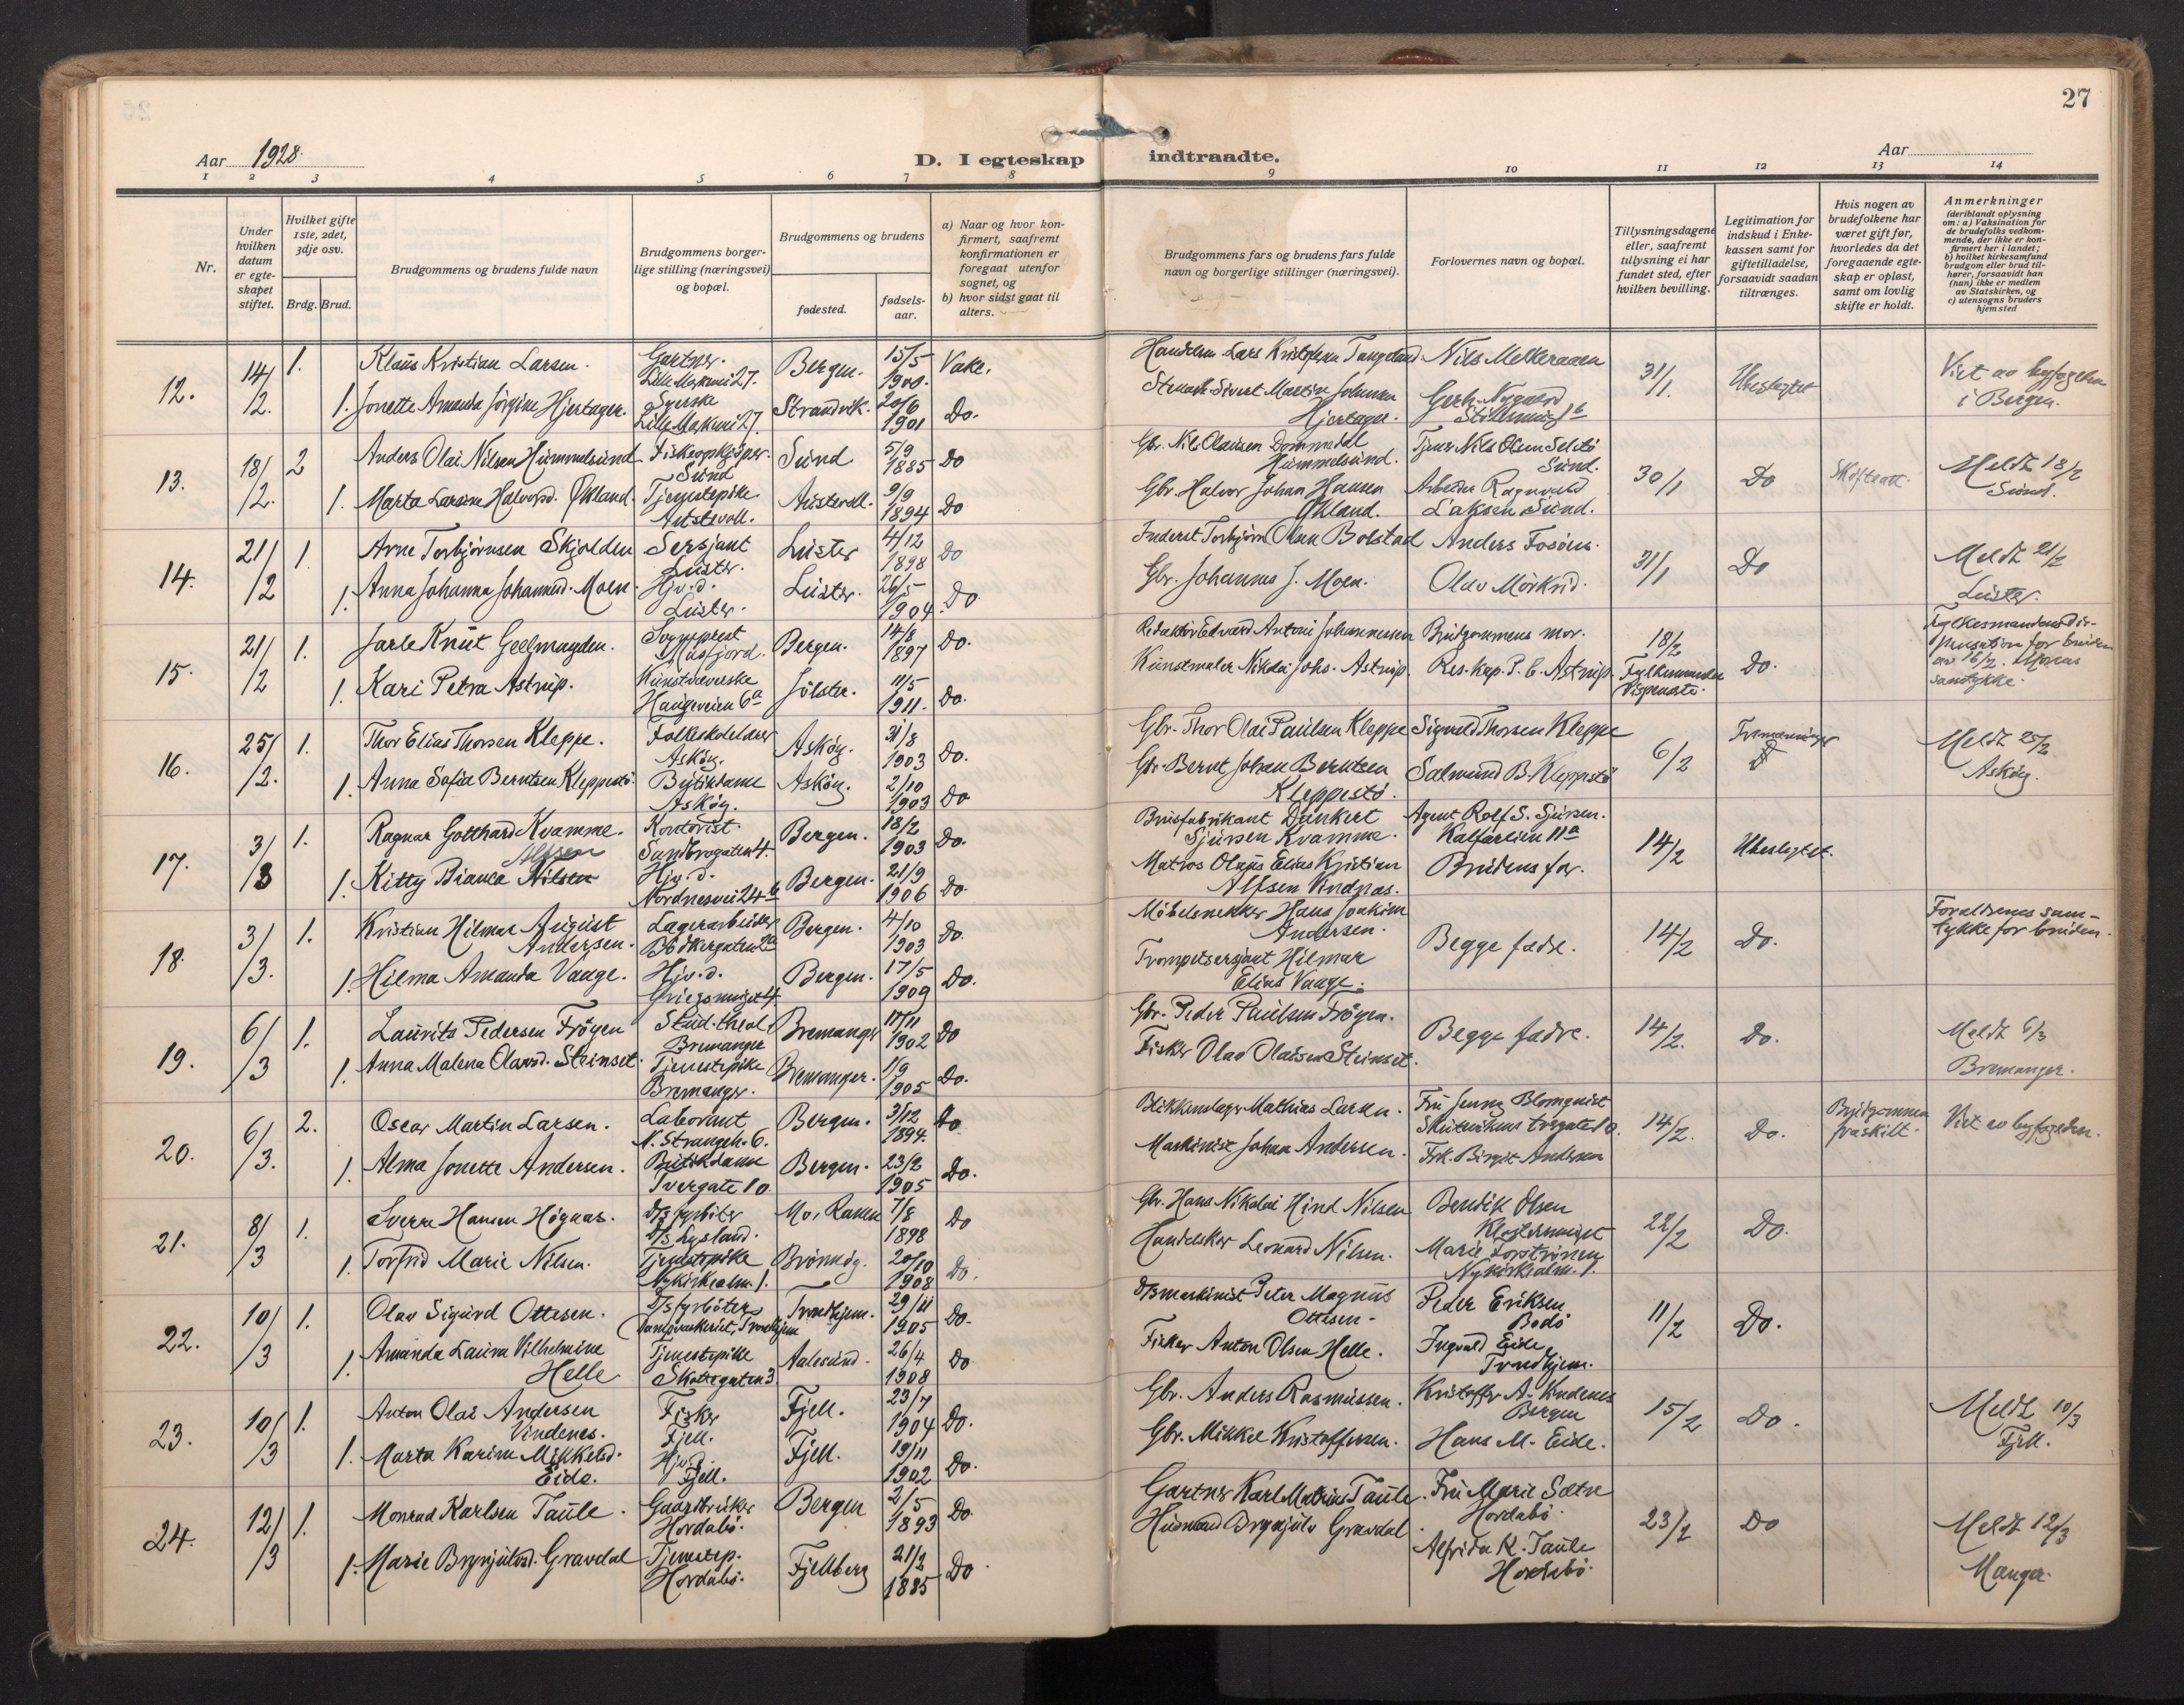 27
Aar 1928.
D. I egteskap indtraadte.
Aar
1 2 3 4 5 6 7 8 9 10 11 12 13 14
Nr.
Under hvilken datum er egteskapet stiftet.
Hvilket gifte 1ste, 2det, 3dje osv.
Brdg. Brud.
Brudgommens og brudens fulde navn
Brudgommens borgerlige stilling (næringsvei) og bopæl.
Brudgommens og brudens
fødested.
fødselsaar.
a) Naar og hvor konfirmert, saafremt konfirmationen er foregaat utenfor sognet, og
b) hvor sidst gaat til alters.
Brudgommens fars og brudens fars fulde navn og borgerlige stillinger (næringsvei).
Forlovernes navn og bopæl.
Tillysningsdagene eller, saafremt tillysning ei har fundet sted, efter hvilken bevilling.
Legitimation for indskud i Enkekassen samt for giftetilladelse, forsaavidt saadan tiltrænges.
Hvis nogen av brudefolkene har været gift før, hvorledes da det foregaaende egteskap er opløst, samt om lovlig skifte er holdt.
Anmerkninger (deriblandt oplysning om: a) Vaksination for de brudefolks vedkommende, der ikke er konfirmert her i landet; b) hvilket kirkesamfund brudgom eller brud tilhører, forsaavidt han (hun) ikke er medlem av Statskirken, og c) utensogns bruders hjemsted
12. 14/2. 1. Klaus Kristian Larsen. Gartner. Bergen. 15/5 1900. Nils Melkeraaen 31/1. Ubeslegtet Viet av byfogden i Bergen.
1. Jonette Amanda Jörgine Hjertager. Syerske Strandvik. 20/6 1901 Do. Hjertager. Gerh. Nygaard
13. 18/2. 2 Anders Olai Nilsen Hummelsund Fiskeopkjöper. Sund Sund. 5/9 1885 Do Hummelsund. Sund. 30/1 Do Skifteatt. Meldt 18/2 Sund.
1. Marta Larsine Halvorsd. Økland. Tjenestepike Austevoll. Austevoll. 9/9 1894 Do Gbr. Halvor Johan Hansen Økland. Arbeider Ragnvald Laksen Sund.
14. 21/2 1 Arne Torbjörnsen Skjolden Sersjant Luster. Luster 4/12 1898 Do Inderst Torbjörn Olsen Bolstad Anders Fosöens. 31/1 Do Meldt 21/2 Luster.
1. Anna Johanna Johannesd. Moen. Hjv. d. Luster. Luster. 26/5 1904. Do. Gbr. Johannes J. Moen. Olav Mörkrid.
15. 21/2 1. Jarle Knut Geelmuyden. Sogneprest Bergen. 14/8 1897 Do. Redaktör Edvard Antoni Johannessen Brudgommens mor. 18/2 Fylkesmandens dispensation for bruden av 16/2. Mors samtykke.
1. Kari Petra Astrup. Kunstvæverske Haugeveien 6a Jölster. 11/5 1911. Do. Kunstmaler Nikolai Johs. Astrup. Res. kap. P. C. Astrup. Fylkesmandens Dispensatio. Do.
16. 25/2. 1. Thor Elias Thorsen Kleppe. Folkeskolelærer Asköy. Asköy. 31/8 1903 Do. Gbr. Thor Olai Paulsen Kleppe Sigvald Thorsen Kleppe 6/2 Tremenninger Meldt 25/2 Asköy.
1. Anna Sofie Berntsen Kleppestö. Butikdame Asköy. Asköy. 2/10 1903 Do Gbr. Bernt Johan Berntsen Kleppestö. Salmund B. Kleppestö
17. 3/3 1. Ragnar Gotthard Kvamme. Kontorist. Sandbrogaten 4. Bergen. 18/2 1903 Do. Brusfabrikant Dankert Sjursen Kvamme. Agent Rolf S. Sjursen. Kalfarlien 11a 14/2 Ubeslegtet.
Alfsen
1. Kitty Bianca Nilsen Hjv. d. Nordnesvei 24 Bergen. 21/9 1906 Do. Matros Olaus Elias Kristian Alfsen Vindnes. Brudens far.
18. 3/3. 1. Kristian Hilmar August Andersen. Lagerarbeider Bödkergaten Bergen. 4/10 1903 Do. Möbelsnekker Hans Joakim Andersen. Begge fedre. 14/2 Do. Foreldrenes samtykke for bruden.
1. Hilma Amanda Vaage. Hjv. d. Griegsmuget 4. Bergen. 17/5 1909 Do. Trompetsersjant Hilmar Elias Vaage.
19. 6/3 1. Laurits Pedersen Fröyen Stud. theol. Bremanger Bremanger 17/11 1902 Do Gbr. Peder Paulsen Fröyen. Begge fedre. 14/2. Do. Meldt 6/3 Bremanger.
1. Anna Malena Olavsd. Steinset. Tjenestepike Bremanger. Bremanger. 1/9 1905 Do. Fisker Olav Olaisen Steinset.
20. 6/3. 2. Oscar Martin Larsen. Laborant N. Strangeh. 6. Bergen. 3/12 1894. Do Blikkenslager Mathias Larsen. Fru Jenny Blomquist 14/2. Do. Brudgommen fraskilt. Viet av byfogden.
1. Alma Jonette Andersen. Butikdame Tvergate 10 Bergen. 23/2 1905 Do. Maskinist Johan Andersen. Frk. Birgit Andersen
21. 8/3 1. Sverre Hansen Högaas. D/s fyrböter D/s Lysland. Mo, Ranen 7/8 1898 Do Gbr. Hans Nikolai Hind Nilsen Bendik Olsen Klostermuget 22/2 Do.
1. Torfrid Marie Nilsen. Tjenestepike Nykirkealm. 1. Brönnöy. 20/10 1908 Do. Leonard Nilsen. Marie Nykirkealm. 1.
22. 10/3 1. Olav Sigurd Ottesen. D/s fyrböter Trondhjem. 29/11 1905 Do. D/s maskinist Peter Magnus Ottesen. Peder Eriksen Bodö 11/2 Do.
1. Amanda Laura Vilhelmine Helle Tjenestepike Skottegaten 3. Aalesund. 26/4 1908 Do Fisker Anton Olsen Helle. Ingvald Eide Trondhjem.
23. 10/3 1. Anton Olai Andersen Vindenes. Fisker Fjell. Fjell. 23/7 1904 Do. Gbr. Anders Rasmussen. Kristoffer A. Vindenes Bergen 15/2 Do. Meldt 10/3 Fjell.
1. Marta Karine Mikkelsd. Eide. Hjv. d. Fjell. Fjell. 19/11 1902 Do. Gbr. Mikkel Kristoffersen. Hans M. Eide.
24. 12/3 1. Monrad Karlsen Taule. Gaardbruker Hordabö. Bergen 2/5 1893 Do. Gartner Karl Mathias Taule. Fru Marie Sætre Hordabö. 23/2 Do Meldt 12/3 Manger.
1. Marie Brynjulvsd. Gravdal Tjenestep. Hordabö. Fjellberg 21/2 1885 Do Husmand Brynjulv Gravdal. Alfrida K. Taule Hordabö.